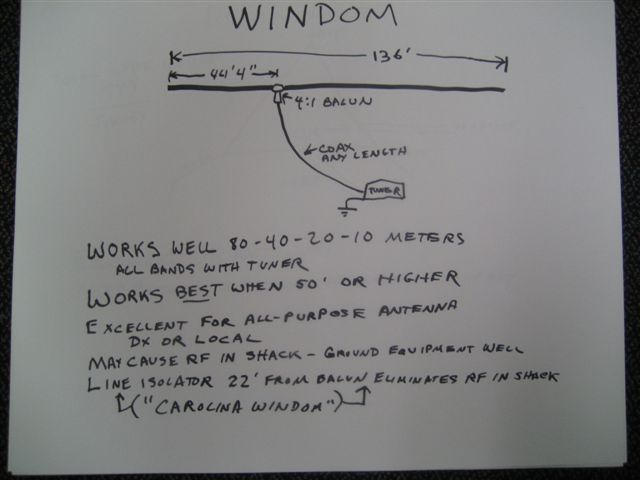 WINDOM
136'
44'4"
4:1 BALUN
COAX
ANY LENGTH
TUNER
WORKS WELL 80-40-20-10 METERS
ALL BANDS WITH TUNER
WORKS BEST WHEN 50' OR HIGHER
EXCELLENT FOR ALL-PURPOSE ANTENNA
DX OR LOCAL
MAY CAUSE RF IN SHACK - GROUND EQUIPMENT WELL
LINE ISOLATOR 22' FROM BALUN ELIMINATES RF IN SHACK
("CAROLINA WINDOM")